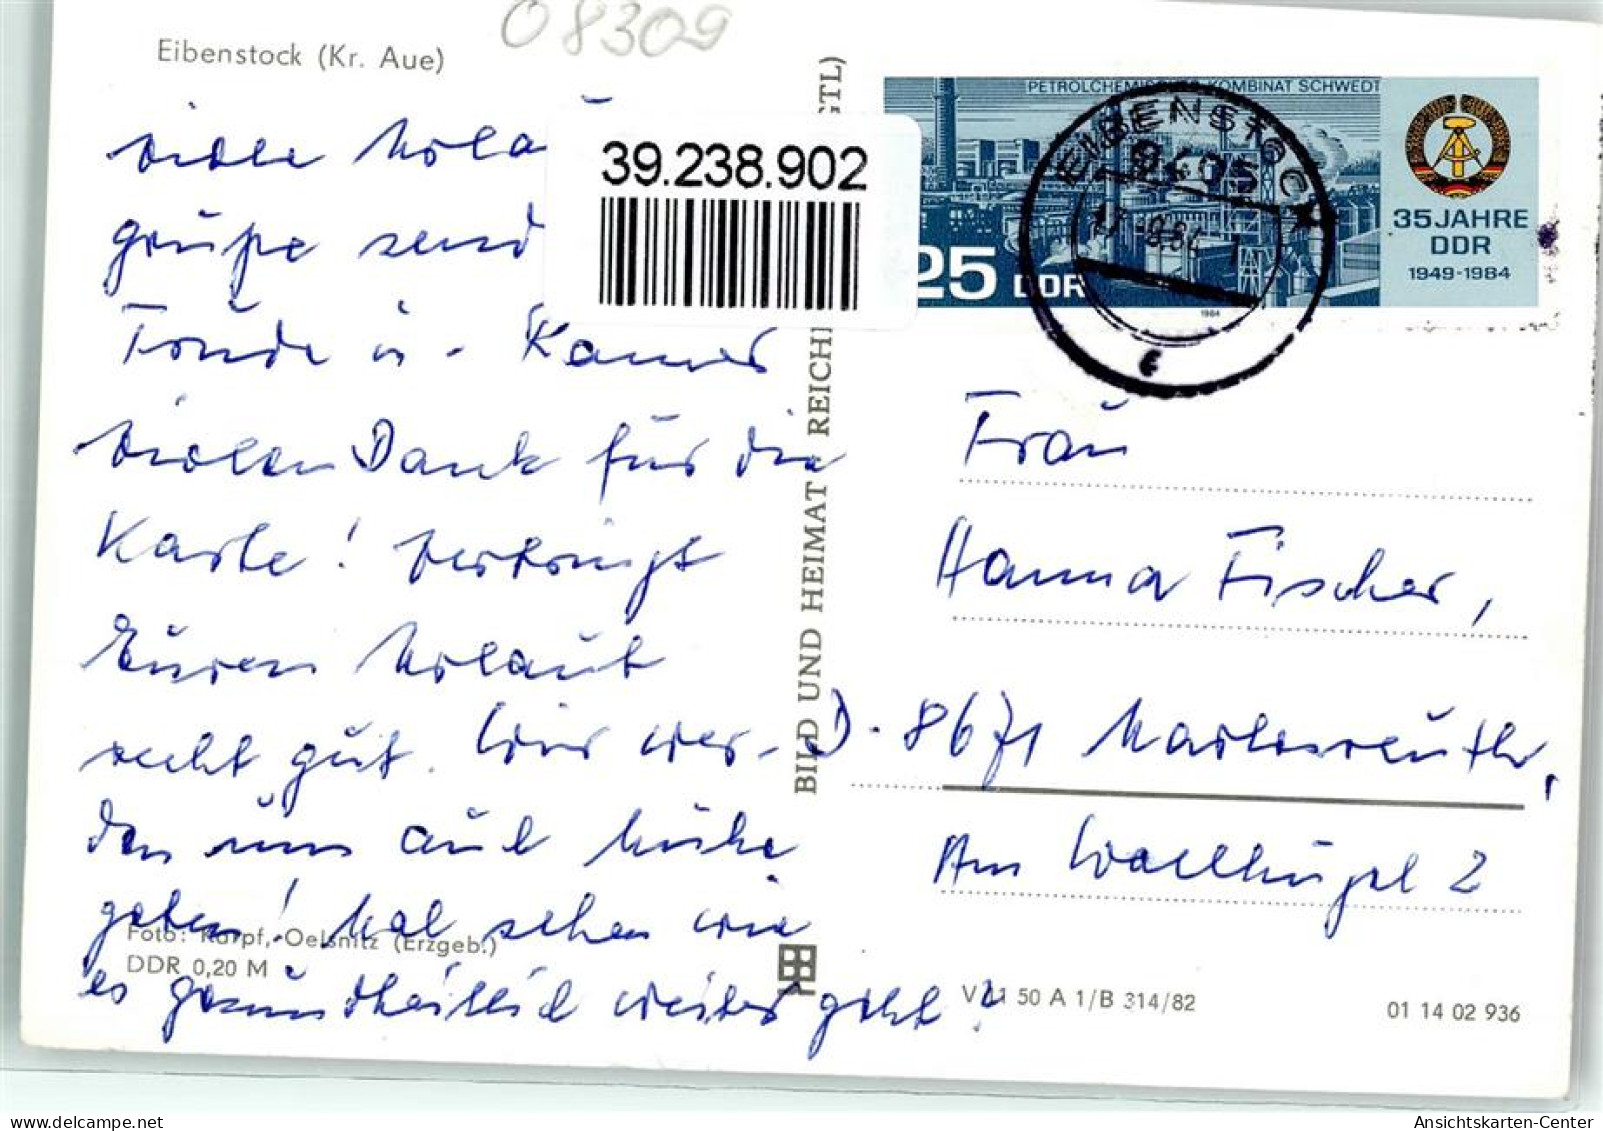 08309
Eibenstock (Kr. Aue)
viele Urla
grüße send
Trude u. Kamer
vielen Dank für die
Karte! Verbringt
Euren Urlaub
recht gut. Wir wer-
den uns auch Mühe
geben! Mal sehen wie
es gesundheitlich weiter geht!
Foto: Karpf, Oelsnitz (Erzgeb.)
DDR 0,20 M
39.238.902
BILD UND HEIMAT REICHE GTL)
PETROLCHEMISCHES KOMBINAT SCHWEDT
25 DDR
1984
35 JAHRE
DDR
1949-1984
EIBENSTOCK
9405
Frau
Hanna Fischer,
D-8671 Marlesreuth,
Am Wallhügel 2
V 11 50 A 1/B 314/82
01 14 02 936
delcampe.net
Ansichtskarten-Center